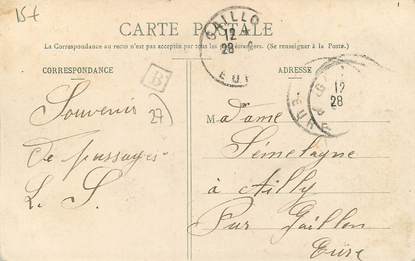 15 f
CARTE POSTALE
La Correspondance au recto n'est pas acceptée par tous les pays étrangers. (Se renseigner à la Poste).
CORRESPONDANCE
ADRESSE
GAILLO
12
28
EU
B
27
12
28
EURE
Souvenir
de passages
L. S.
Madame
à Ailly
Par Gaillon
Eure